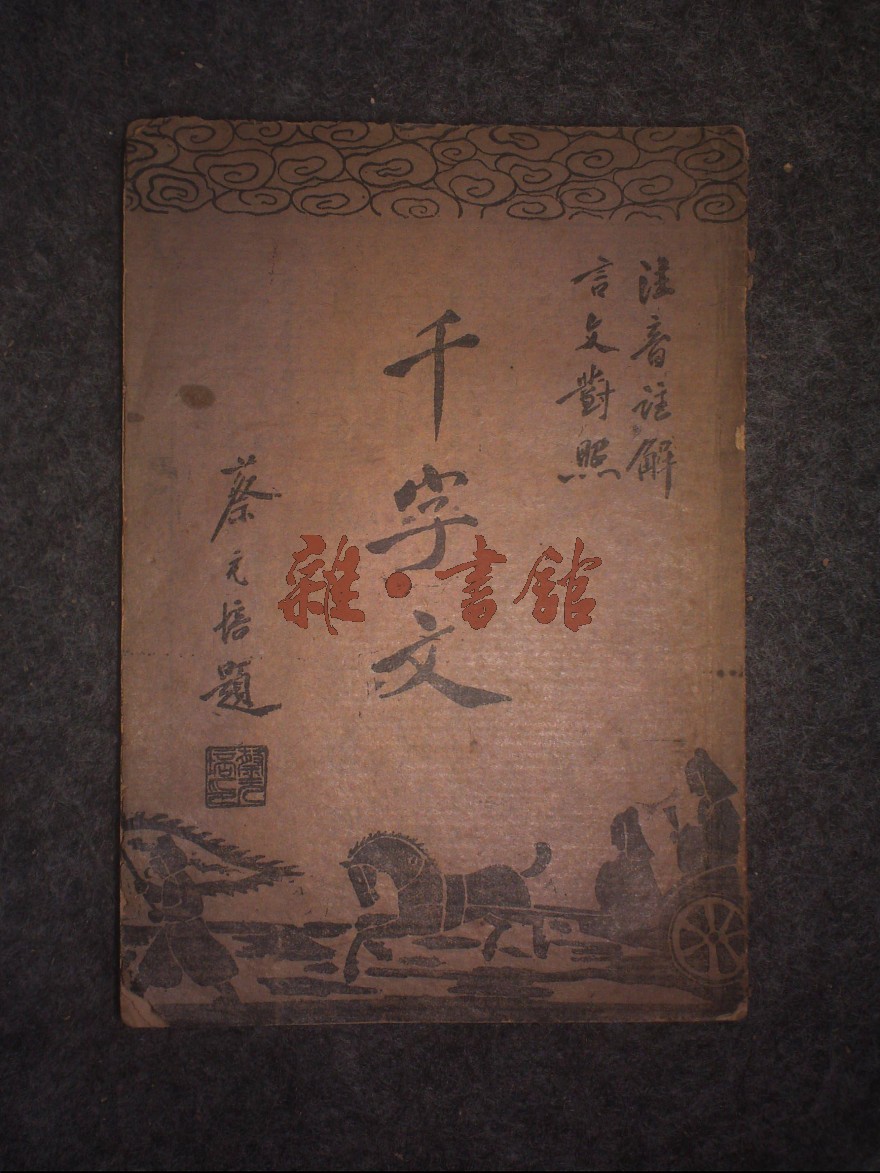 注音註解
言文對照
千字文
蔡元培題
蔡元培印
雜·書館